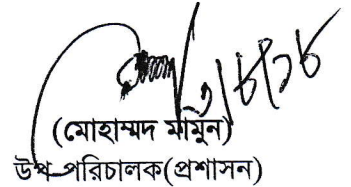 ৩/৮/১৮
(মোহাম্মদ মামুন)
উপ-পরিচালক(প্রশাসন)